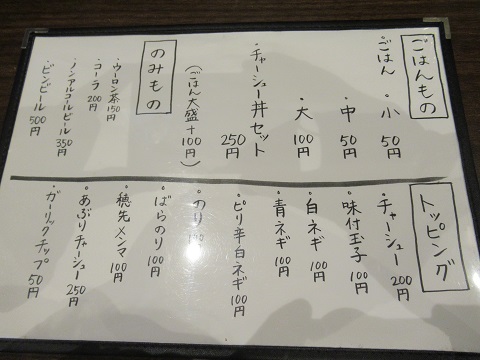 ごはんもの
・ごはん
・小 50円
・中 50円
・大 100円
・チャーシュー丼セット 250円
(ごはん大盛+100円)
のみもの
・ウーロン茶 150円
・コーラ 200円
・ノンアルコールビール 350円
・ビンビール 500円
トッピング
・チャーシュー 200円
・味付玉子 100円
・白ネギ 100円
・青ネギ 100円
・ピリ辛白ネギ 100円
・のり
・ばらのり 100円
・穂先メンマ 100円
・あぶりチャーシュー 250円
・ガーリックチップ 50円